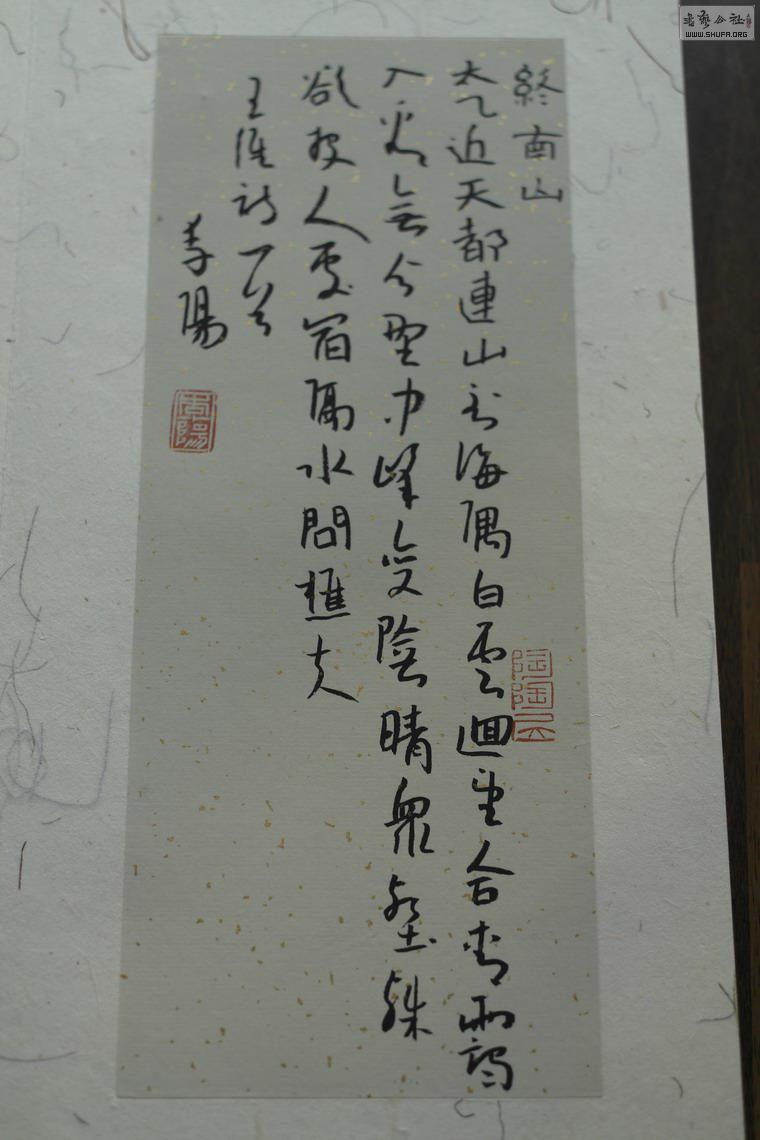 終南山
太乙近天都連山到海隅白雲迴望合青靄
入看無分野中峰變陰晴衆壑殊
欲投人處宿隔水問樵夫
王維詩一首
陽
陶陶
WWW.SHUFA.ORG